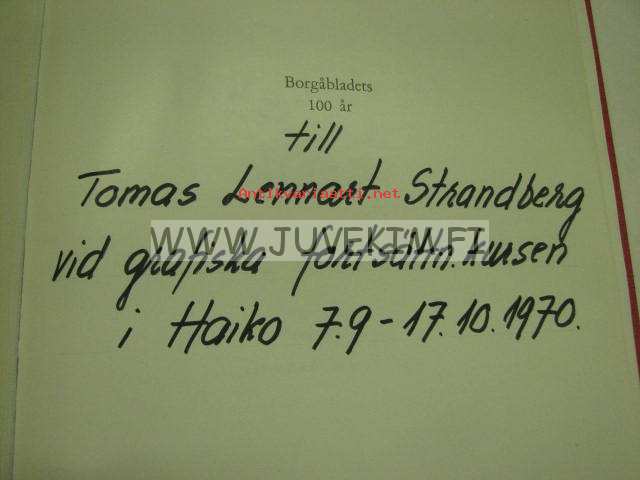 Borgåbladets
100 år
till
Tomas Lennart Strandberg
Antikvariaatti.net
WWW.JUVEKTW.FI
vid grafiska fortsättn.kursen
i Haiko 7.9-17.10.1970.